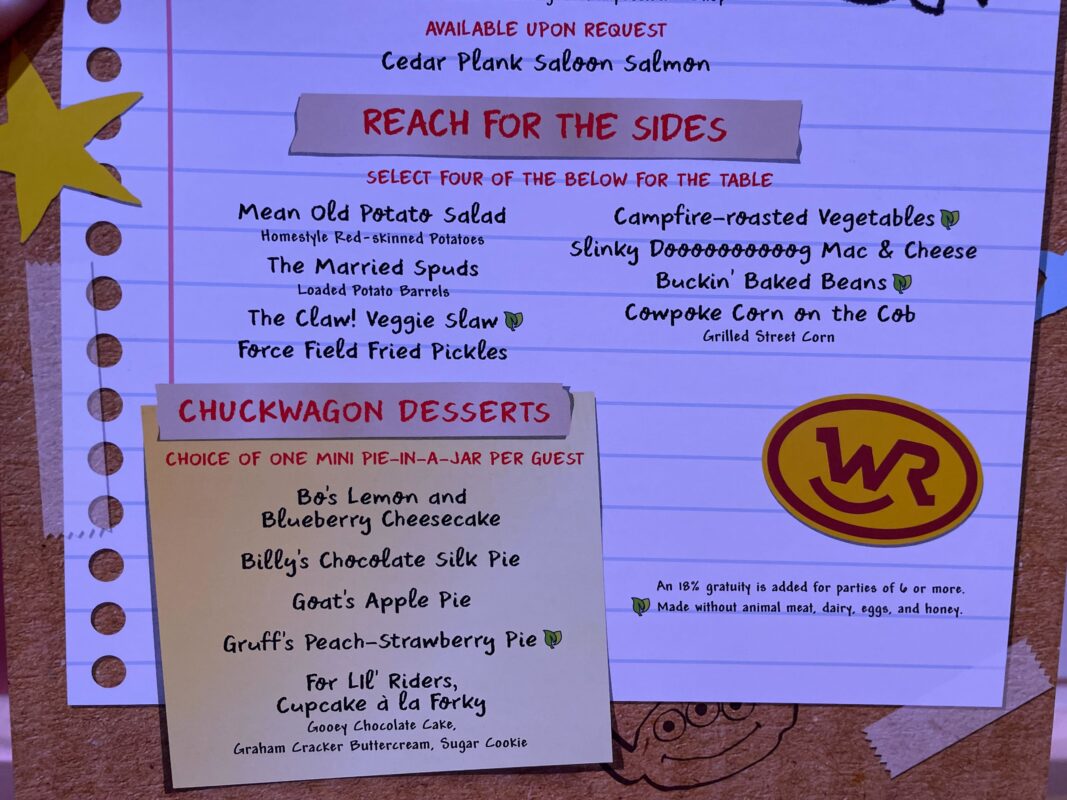 AVAILABLE UPON REQUEST
Cedar Plank Saloon Salmon
REACH FOR THE SIDES
SELECT FOUR OF THE BELOW FOR THE TABLE
Mean Old Potato Salad
Homestyle Red-skinned Potatoes
The Married Spuds
Loaded Potato Barrels
The Claw! Veggie Slaw
Force Field Fried Pickles
Campfire-roasted Vegetables
Slinky Doooooooooog Mac & Cheese
Buckin' Baked Beans
Cowpoke Corn on the Cob
Grilled Street Corn
CHUCKWAGON DESSERTS
CHOICE OF ONE MINI PIE-IN-A-JAR PER GUEST
Bo's Lemon and
Blueberry Cheesecake
Billy's Chocolate Silk Pie
Goat's Apple Pie
Gruff's Peach-Strawberry Pie
For LIl' Riders,
Cupcake à la Forky
Gooey Chocolate Cake,
Graham Cracker Buttercream, Sugar Cookie
WR
An 18% gratuity is added for parties of 6 or more.
Made without animal meat, dairy, eggs, and honey.